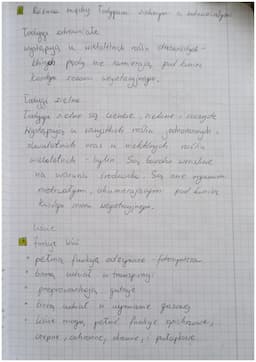 Różnice między łodygami zielnymi a zdrewniałymi
Łodygi zdrewniałe
występują u wieloletnich roślin drzewiastych -
których pędy nie zamierają pod koniec
każdego sezonu wegetacyjnego.
Łodygi zielne
Łodygi zielne są cienkie, zielone i
Występują u wszystkich roślin jednorocznych,
dwuletnich oraz u niektórych roślin
wieloletnich - bylin. Są bardzo wrażliwe
na warunki środowiska. Są one organem
nietrwałym, obumierającym pod koniec
każdego sezonu wegetacyjnego.
Liście
Funkcje liści
• pełnią funkcję odżywczą - fotosynteza
• biorą udział w transpiracji
• przeprowadzają gutację
• biorą udział w wymianie gazowej
• liście mogą pełnić funkcje spichrzowe,
czepne, ochronne, pułapkowe